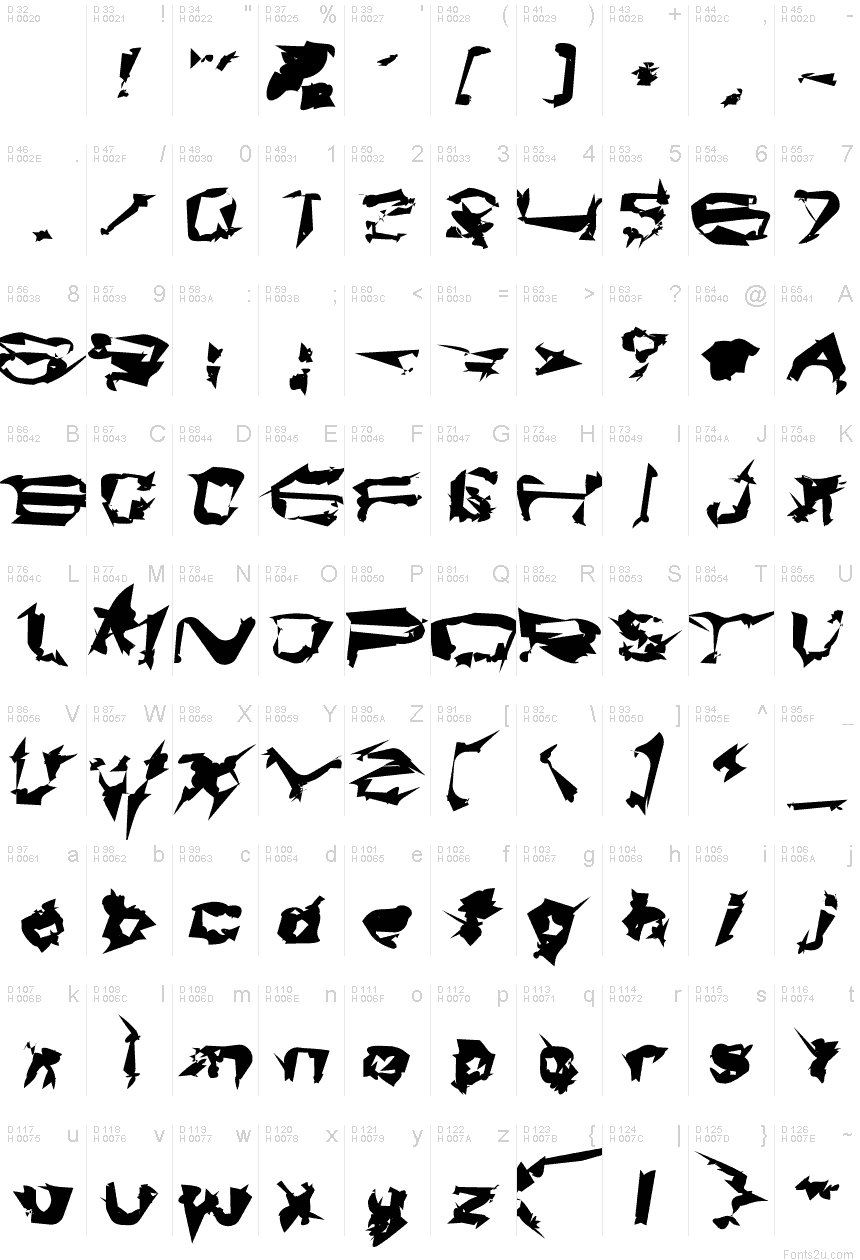 D 32 D 33 ! D 34 " D 37 % D 39 ' D 40 ( D 41 ) D 43 + D 44 , D 45 -
H 0020 H 0021 H 0022 H 0025 H 0027 H 0028 H 0029 H 002B H 002C H 002D
! " % ' ( ) + , -
D 46 . D 47 / D 48 0 D 49 1 D 50 2 D 51 3 D 52 4 D 53 5 D 54 6 D 55 7
H 002E H 002F H 0030 H 0031 H 0032 H 0033 H 0034 H 0035 H 0036 H 0037
. / 0 1 2 3 4 5 6 7
D 56 8 D 57 9 D 58 : D 59 ; D 60 < D 61 = D 62 > D 63 ? D 64 @ D 65 A
H 0038 H 0039 H 003A H 003B H 003C H 003D H 003E H 003F H 0040 H 0041
8 9 : ; < = > ? @ A
D 66 B D 67 C D 68 D D 69 E D 70 F D 71 G D 72 H D 73 I D 74 J D 75 K
H 0042 H 0043 H 0044 H 0045 H 0046 H 0047 H 0048 H 0049 H 004A H 004B
B C D E F G H I J K
D 76 L D 77 M D 78 N D 79 O D 80 P D 81 Q D 82 R D 83 S D 84 T D 85 U
H 004C H 004D H 004E H 004F H 0050 H 0051 H 0052 H 0053 H 0054 H 0055
L M N O P Q R S T U
D 86 V D 87 W D 88 X D 89 Y D 90 Z D 91 [ D 92 \ D 93 ] D 94 ^ D 95 _
H 0056 H 0057 H 0058 H 0059 H 005A H 005B H 005C H 005D H 005E H 005F
V W X Y Z [ \ ] ^ _
D 97 a D 98 b D 99 c D 100 d D 101 e D 102 f D 103 g D 104 h D 105 i D 106 j
H 0061 H 0062 H 0063 H 0064 H 0065 H 0066 H 0067 H 0068 H 0069 H 006A
a b c d e f g h i j
D 107 k D 108 l D 109 m D 110 n D 111 o D 112 p D 113 q D 114 r D 115 s D 116 t
H 006B H 006C H 006D H 006E H 006F H 0070 H 0071 H 0072 H 0073 H 0074
k l m n o p q r s t
D 117 u D 118 v D 119 w D 120 x D 121 y D 122 z D 123 { D 124 | D 125 } D 126 ~
H 0075 H 0076 H 0077 H 0078 H 0079 H 007A H 007B H 007C H 007D H 007E
u v w x y z { | } ~
Fonts2u.com